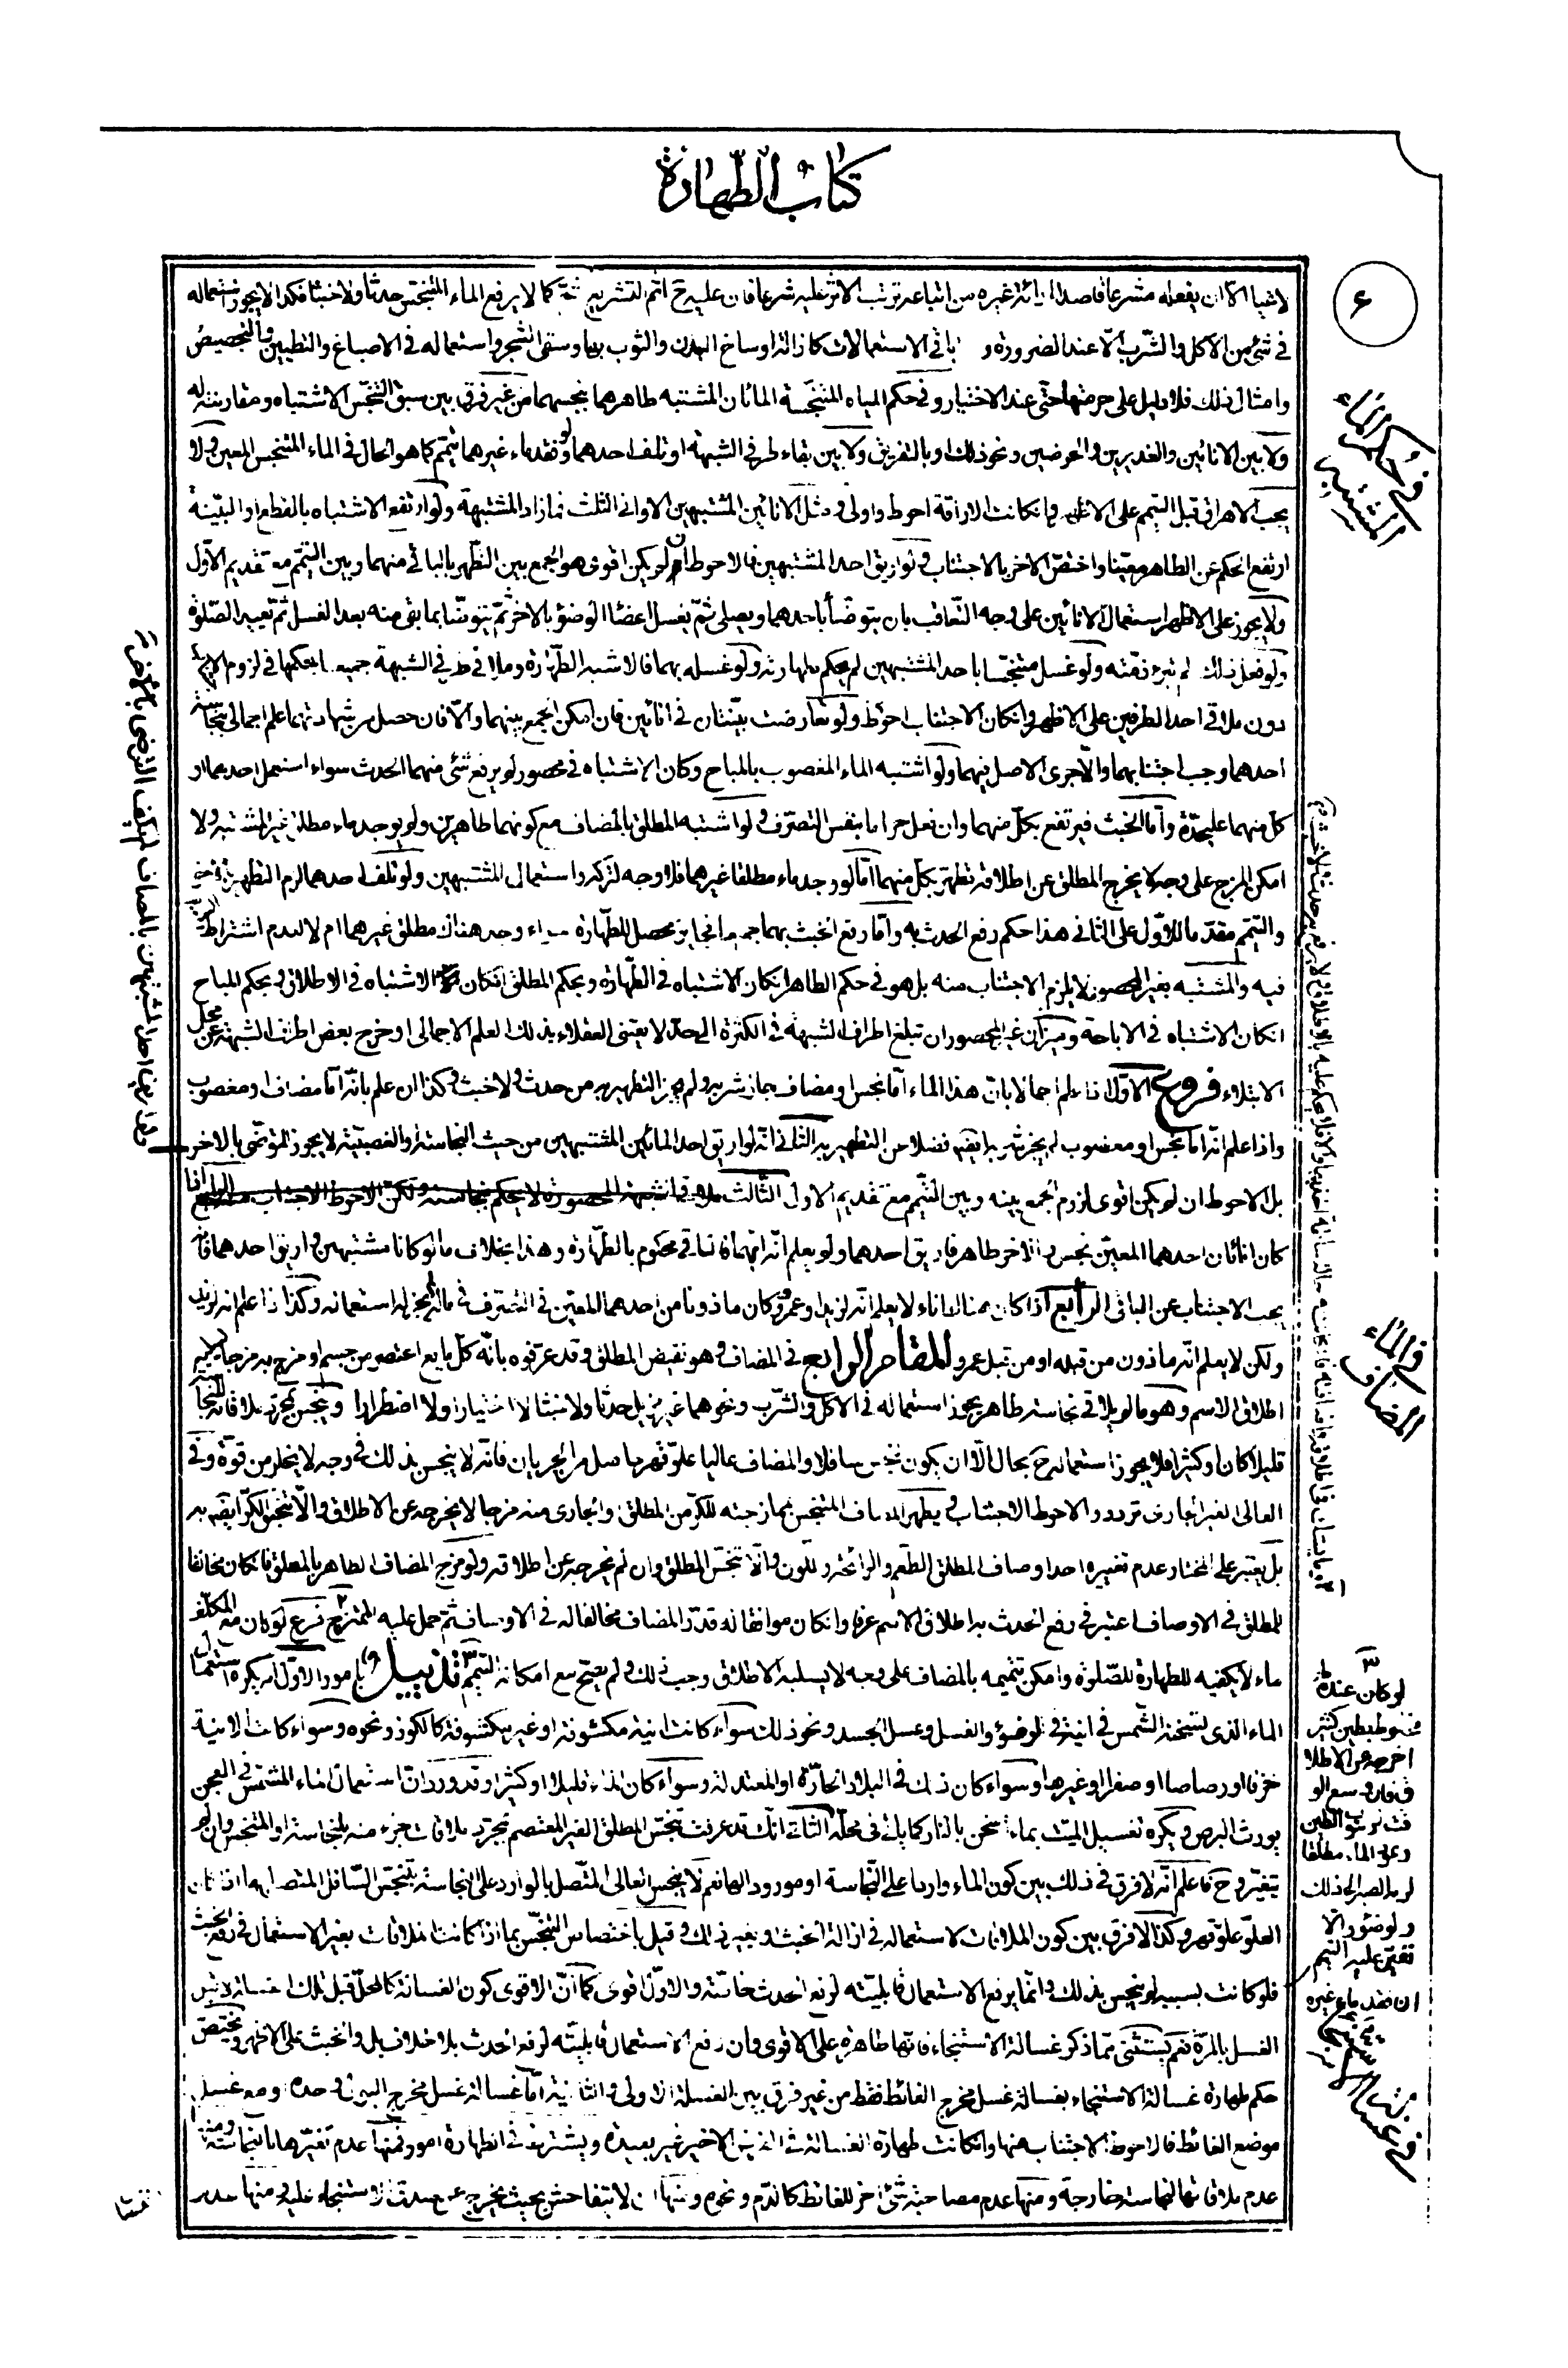 كتاب الطهارة
٦
لاشيا الا ان يفعله مشرعا قاصدا اراءة غيره من اتباعه ترتب الاثر عليه شرعا فان عليه ح اثم التشريع ثمّ كما لا يرفع الماء المتنجّس حدثا ولا خبثا فكذا لا يجوز استعماله
في شئ من الاكل والشّرب الّا عند الضرورة و باقي الاستعمالات كازالة اوساخ البدن والثوب بها وسقى الشجر واستعماله في الاصباغ والتطيين والتجصيص
وامثال ذلك فلا دليل على حرمتها حتى عند الاختيار وفي حكم المياه المتنجّسة المائان المشتبه طاهرهما بنجسهما من غير فرق بين سبق التنجّس الاشتباه ومقارنته له
ولا بين الانائين والغديرين والحوضين ونحو ذلك او بالتفريق ولا بين بقاء طرفي الشبهة او تلف احدهما ولو فقد ماء غيرهما يتيمّم كما هو الحال في الماء المتنجس المعين ولا
يجب الاهراق قبل التيمم على الاظهر وان كانت الاراقة احوط واولى ومثل الانائين المشتبهين الاواني الثلث فما زاد المشتبهة ولو ارتفع الاشتباه بالقطع او البيّنة
ارتفع الحكم عن الطاهر معيّنا واختصّ الاخر بالاجتناب ولو اريق احد المشتبهين فالاحوط ان لم يكن اقوى هو الجمع بين التطّهر بالباقي منهما وبين التيمّم مع تقديم الاوّل
ولا يجوز على الاظهر استعمال الانائين على وجه التّعاقب بان يتوضّأ باحدهما ويصلى ثمّ يغسل اعضاء الوضوء بالاخر ثمّ يتوضّأ بما بقى منه بعد الغسل ثمّ يعيد الصّلوة
ولو فعل ذلك لم تبرء ذمّته ولو غسل متنجّسا باحد المشتبهين لم يحكم بطهارته ولو غسله بهما فالاشبه الطّهارة وملاقي طرفي الشبهة جميعا بحكمها في لزوم الاجتناب
دون ملاقي احد الطرفين على الاظهر وان كان الاجتناب احوط ولو تعارضت بيّنتان في انائين فان امكن الجمع بينهما والّا فان حصل من شهادتهما علم اجمالى بنجاسة
احدهما وجب اجتنابهما والّا جرى الاصل فيهما ولو اشتبه الماء المغصوب بالمباح وكان الاشتباه في محصور لم يرفع شئ منهما الحدث سواء استعمل احدهما او
كل منهما عليحدّة وأمّا الخبث فيرتفع بكلّ منهما وان فعل حراما بنفس التصرّف ولو اشتبه المطلق بالمضاف مع كونهما طاهرين ولم يوجد ماء مطلق غير المشتبه ولا
امكن المزج على وجه لا يخرج المطلق عن اطلاقه تطهّر بكلّ منهما امّا لو وجد ماء مطلقا غيرهما فلا وجه لتركه واستعمال المشتبهين ولو تلف احدهما لزم التطهير بالاخر
والتيمّم مقدّما للاوّل على الثاني هذا حكم رفع الحدث به وأمّا رفع الخبث بهما جميعا فجايز محصل للطّهارة سواء وجد هناك مطلق غيرهما ام لا لعدم اشتراط
فيه والمشتبه بغير المحصور لا يلزم الاجتناب منه بل هو في حكم الطاهر ان كان الاشتباه في الطّهارة وبحكم المطلق ان كان الاشتباه في الاطلاق وبحكم المباح
ان كان الاشتباه في الاباحة وميزان غير المحصور ان تبلغ اطراف الشبهة في الكثرة الى حدّ لا يعتنى العقلاء بذلك العلم الاجمالى او خرج بعض اطراف الشبهة عن محل
الابتلاء فروع الاوّل اذا علم اجمالا بان هذا الماء امّا نجس او مضاف جاز شربه ولم يجز التطهير به من حدث ولا خبث وكذا ان علم بانّه امّا مضاف او مغصوب
واذا علم انّه امّا نجس او مغصوب لم يجز شربه ايضا فضلا عن التطهير به الثاني انّه لو اريق احد المائين المشتبهين من حيث النجاسة او الغصبيّة لا يجوز التوضّى بالاخر
بل الاحوط ان لم يكن اقوى لزوم الجمع بينه وبين التيمّم مع تقديم الاول الثالث ملاقي الشبهة المحصورة لا يحكم بنجاسته ولكن الاحوط الاجتناب الرابع اذا
كان انائان احدهما المعيّن نجس والاخر طاهر فاريق احدهما ولم يعلم انّه ايّهما فالباقي محكوم بالطّهارة وهذا بخلاف ما لو كانا مشتبهين واريق احدهما فانّه
يجب الاجتناب عن الباقي الرابع اذا كان هنالك اناء لا يعلم انّه لزيد او عمرو وكان ماذونا من احدهما المعيّن في التصرّف في ماله لم يجز له استعماله وكذا اذا علم انه لزيد
ولكن لا يعلم انّه ماذون من قبله او من قبل عمرو المقام الرابع في المضاف وهو نقيض المطلق وقد عرّفوه بانّه كلّ مايع اعتصر من جسم او مزج به مزجا يسلبه
اطلاق الاسم وهو ما لم يلاقي نجاسة طاهر يجوز استعماله في الاكل والشّرب ونحوهما غير مزيل حدثا ولا خبثا لا اختيارا ولا اضطرارا وينجس بمجرّد ملاقاته للنجاسة
قليلا كان او كثيرا فلا يجوز استعماله ح بحال الّا ان يكون نجس سافلا والمضاف عاليا علوّ قهر حاصل من الجريان فانّه لا ينجس بذلك في وجه لا يخلو من قوّة وفي
العالى الغير الجارى تردد والاحوط الاجتناب ويطهر المضاف المتنجس بممازجته للكرّ من المطلق والجارى منه مزجا لا يخرجه عن الاطلاق والّا تنجّس الكرّ ايضا به
بل يعتبر على المختار عدم تغييره احد اوصاف المطلق الطّعم والرائحة واللّون والّا تنجّس المطلق وان لم يخرجه عن اطلاقه ولو مزج المضاف الطاهر بالمطلق فان كان مخالفا
للمطلق في الاوصاف اعتبر في رفع الحدث به اطلاق الاسم عرفا وان كان موافقا له قدّر المضاف مخالفا له في الاوصاف ثمّ حمل عليه الممتزج فرع لو كان مع المكلّف
ماء لا يكفيه للطهارة للصّلوة وامكن تتميمه بالمضاف على وجه لا يسلبه الاطلاق وجب ذلك ولم يصح مع امكانه التيمّم تذييل وبامور الاوّل انه يكره استعمال
الماء الذى يسخنه الشّمس في انية في الوضوء والغسل وغسل الجسد ونحو ذلك سواء كانت انية مكشوفة او غير مكشوفة كالكوز ونحوه وسواء كانت الانية
خزفا او رصاصا او صفرا او غيرها وسواء كان ذلك في البلاد الحارّة او المعتدلة وسواء كان الماء قليلا او كثيرا وقد ورد انّ استعمال الماء المشمّس في العجن
يورث البرص ويكره تغسيل الميّت بماء سخن بالنار كما يأتى في محلّه الثاني انّك قد عرفت تنجّس المطلق الغير المعتصم بمجرّد ملاقات جزء منه بالنجاسة او المتنجس وان لم
يتغيّر وح فاعلم انّه لا فرق في ذلك بين كون الماء واردا على النّجاسة او مورودا لها نعم لا ينجس العالى المتّصل بالوارد على النجاسة بتنجّس السّافل المتّصل بها اذا كان
العلوّ علوّ قهر وكذا لا فرق بين كون الملاقات لاستعماله في ازالة الخبث او بغير ذلك وقيل باختصاص التنجّس بما اذا كانت الملاقات بغير الاستعمال في رفع الخبث
فلو كانت بسببه لم ينجس بذلك وانّما يرفع الاستعمال قابليّته لرفع الحدث خاصّة والاوّل اقوى كما انّ الاقوى كون الغسالة كالمحلّ قبل تلك الغسالة لا قبل
الغسل بالمرّة نعم يستثنى ممّا ذكر غسالة الاستنجاء فانّها طاهرة على الاقوى وان رفع الاستعمال قابليّته لرفع الحدث بلا خلاف بل والخبث على الاظهر ويختصّ
حكم طهارة غسالة الاستنجاء بغسالة غسل مخرج الغائط فقط من غير فرق بين الغسلة الاولى والثانية امّا غسالة غسل مخرج البول وحده او مع غسل
موضع الغائط فالاحوط الاجتناب عنها وان كانت طهارة الغسالة في الاخير غير بعيدة ويشترط في الطهارة امور فمنها عدم تغيّرها بالنجاسة ومنها
عدم ملاقاتها لنجاسة خارجة ومنها عدم مصاحبة شئ اخر للغائط كالدّم ونحوه ومنها ان لا يتفاحش بحيث يخرج عن صدق الاستنجاء عليه ومنها عدم
في حكم الماء المشتبه
في الماء المضاف
لو كان عنده ماء
مخلوط بطين كثير
اخرجه عن الاطلا
ق فان وسع الو
قت لرسوب الطين
وعود الماء مطلقا
لزم الصبر الى ذلك
والوضوء والّا
تعيّن عليه التيمم
ان فقد ماء غيره
في غسالة الاستنجاء
ولو اريق احد المشتبهين بالمضاف لم يكف التوضى بالاخر